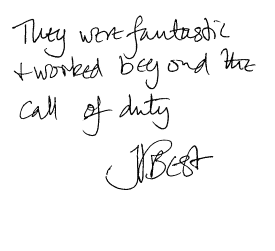 They were fantastic
+ worked beyond the
call of duty
JVBest